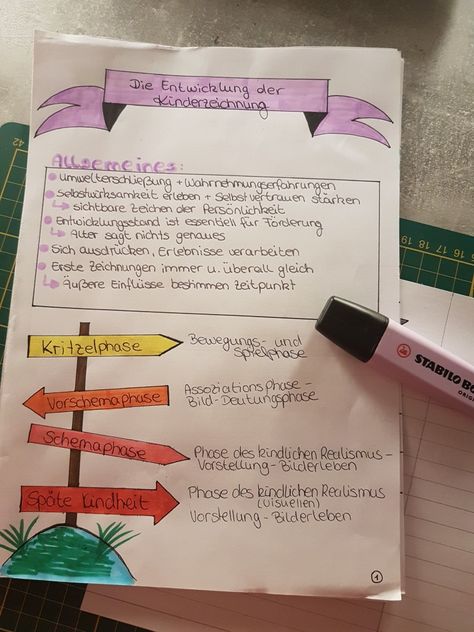 Die Entwicklung der
Kinderzeichnung
Allgemeines:
Umwelterschließung + Wahrnehmungserfahrungen
Selbstwirksamkeit erleben + Selbstvertrauen stärken
↳ sichtbare Zeichen der Persönlichkeit
Entwicklungsstand ist essentiell für Förderung
↳ Alter sagt nichts genaues
Sich ausdrücken, Erlebnisse verarbeiten
Erste Zeichnungen immer u. überall gleich
↳ Äußere Einflüsse bestimmen Zeitpunkt
Kritzelphase
Bewegungs- und
Spielphase
Vorschemaphase
Assoziationsphase -
Bild-Deutungsphase
Schemaphase
Phase des kindlichen Realismus -
Vorstellung - Bilderleben
Späte Kindheit
Phase des kindlichen Realismus
(visuellen)
Vorstellung - Bilderleben
1
STABILO BO
ORIGI
42
17
18
19